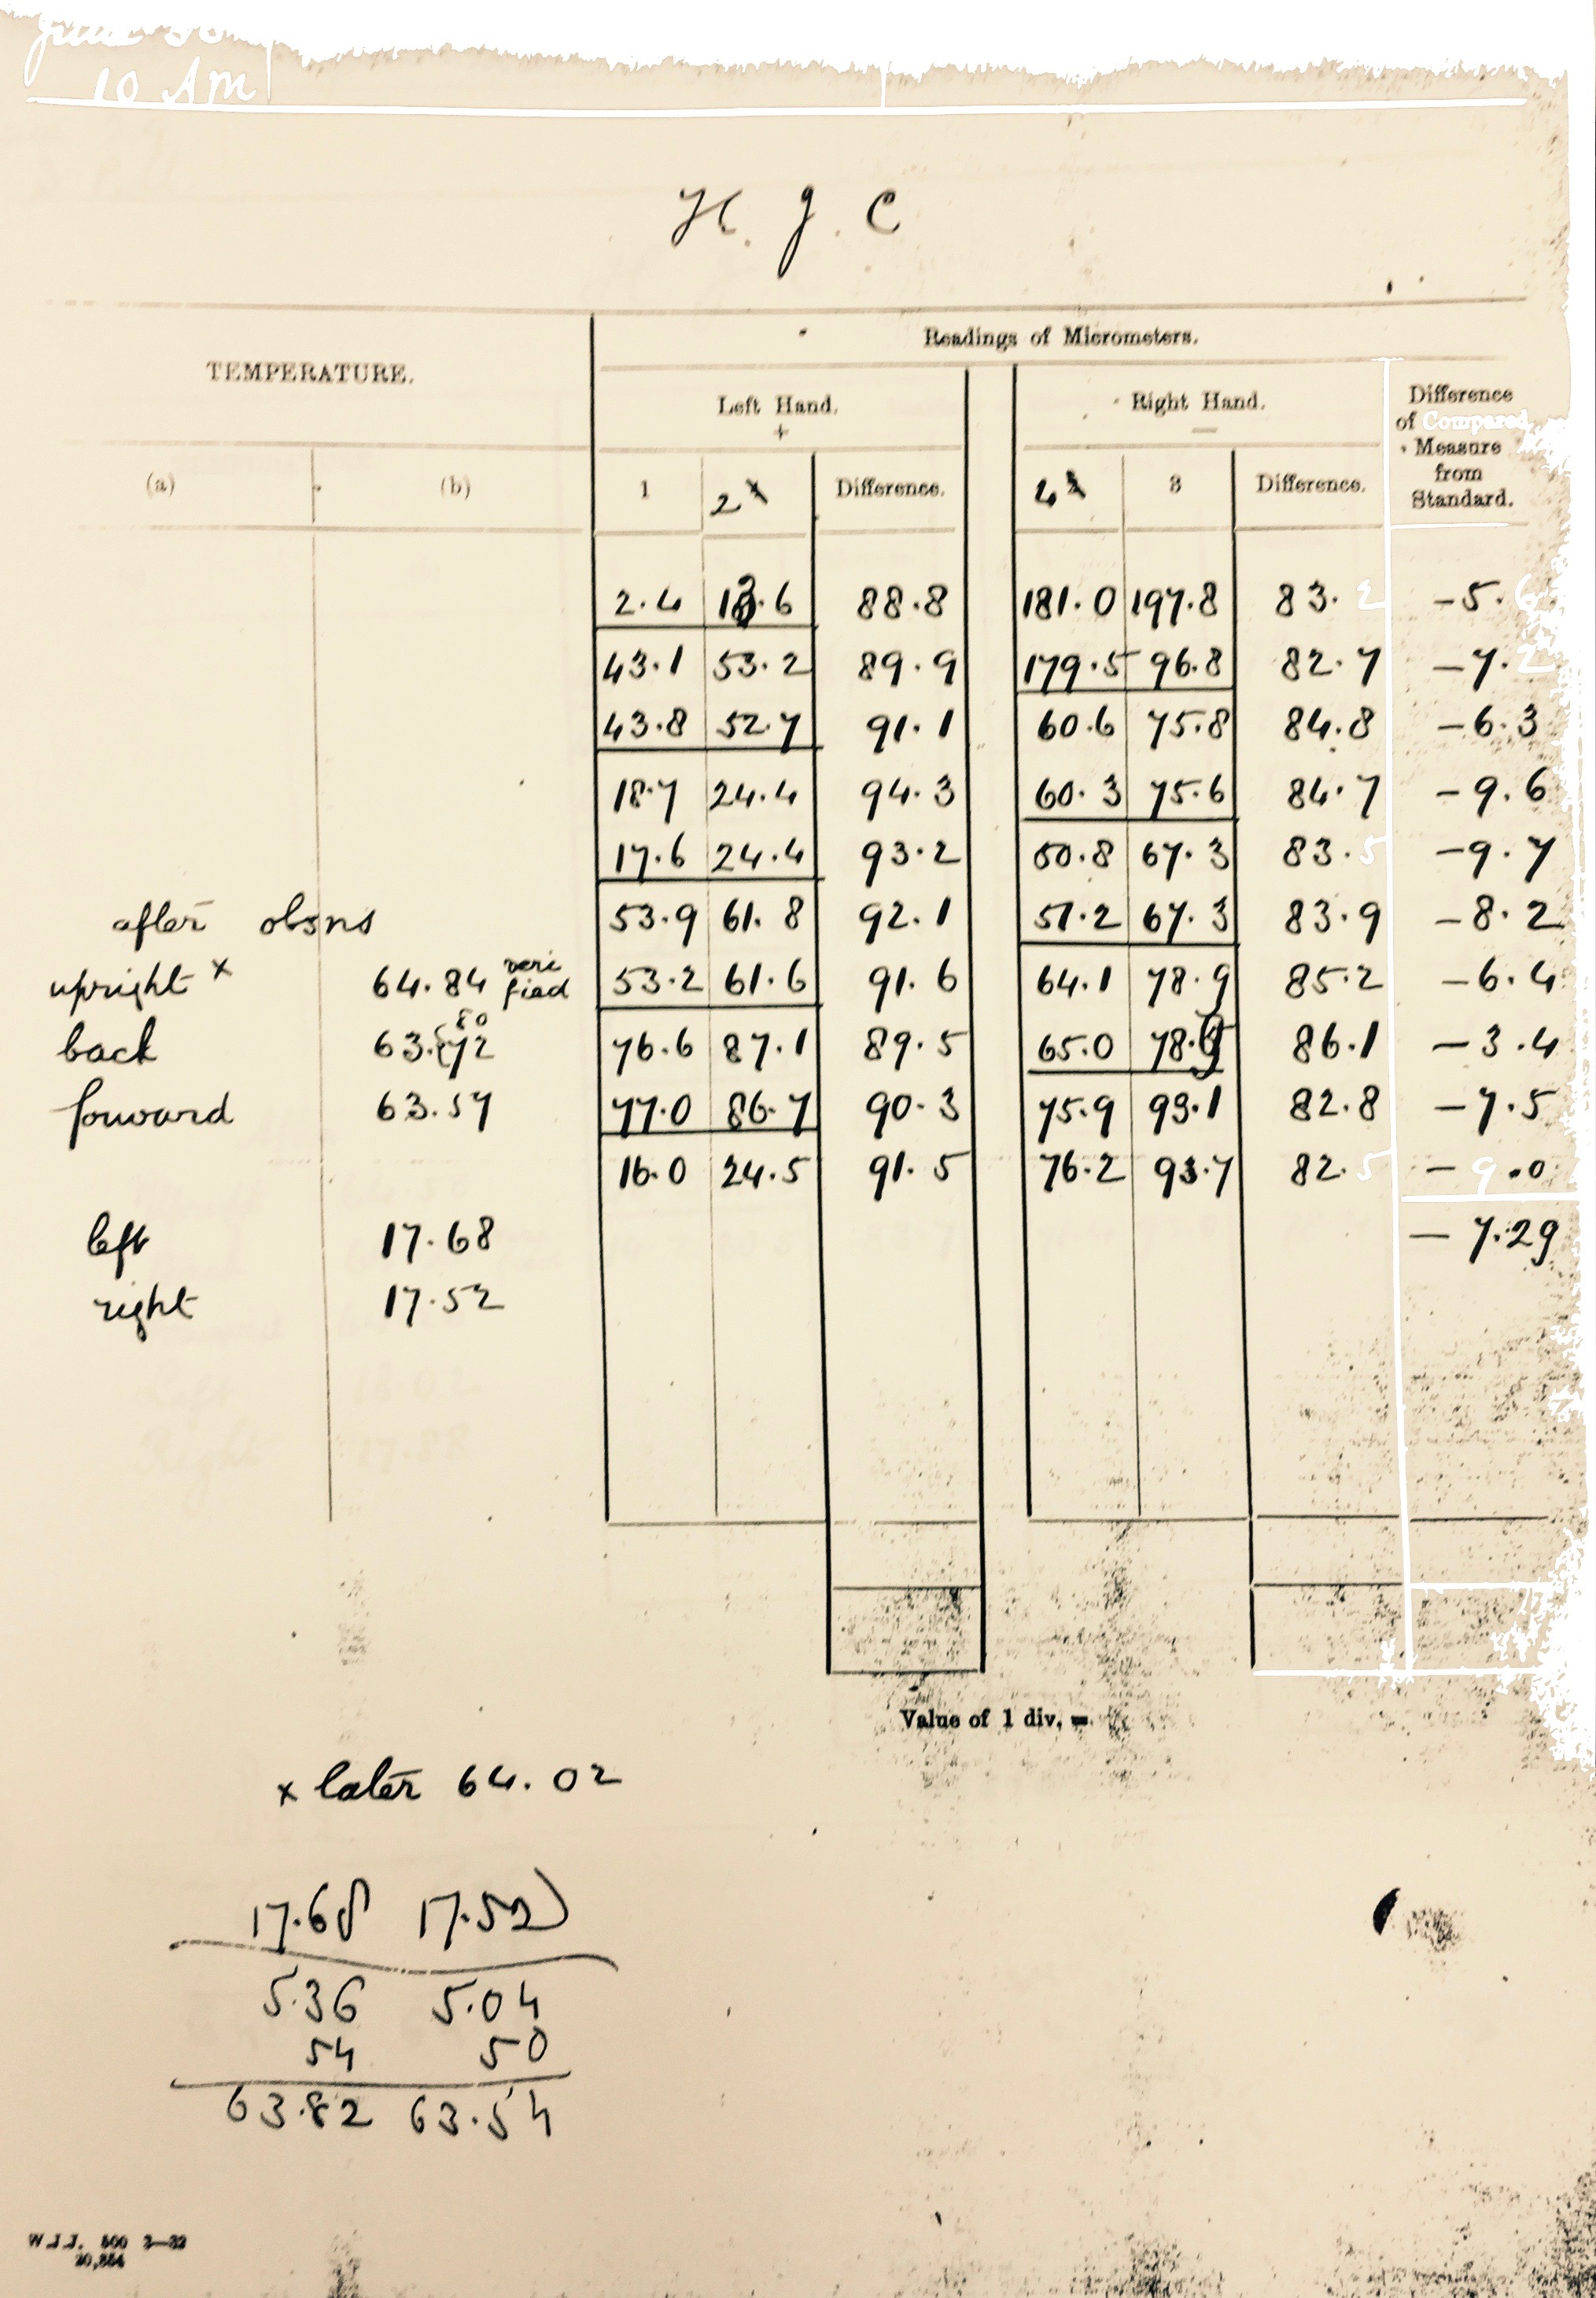 June 30
10 AM
H. J. C
TEMPERATURE.
Readings of Micrometers.
Left Hand.
+
Right Hand.
—
Difference of Compared Measure from Standard.
(a) (b) 1 2 x Difference. 4 3 Difference.
2.4 13.6 88.8 181.0 197.8 83.2 -5.6
43.1 53.2 89.9 179.5 96.8 82.7 -7.2
43.8 52.7 91.1 60.6 75.8 84.8 -6.3
18.7 24.4 94.3 60.3 75.6 84.7 -9.6
17.6 24.4 93.2 50.8 67.3 83.5 -9.7
after obsns 53.9 61.8 92.1 51.2 67.3 83.9 -8.2
upright x 64.84 verified 53.2 61.6 91.6 64.1 78.9 85.2 -6.4
back 63.{80 72 76.6 87.1 89.5 65.0 78.9 86.1 -3.4
forward 63.57 77.0 86.7 90.3 75.9 93.1 82.8 -7.5
16.0 24.5 91.5 76.2 93.7 82.5 -9.0
left 17.68 -7.29
right 17.52
Value of 1 div. =
x later 64.02
17.68 17.52
5.36 5.04
54 50
63.82 63.54
W.J.J. 500 2—32
20,554